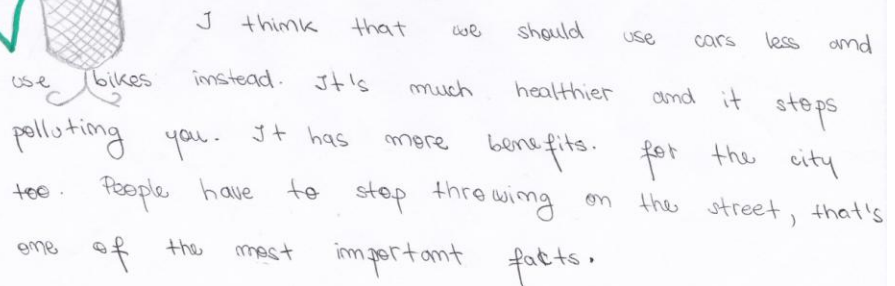 I think that we should use cars less and
use bikes instead. It's much healthier and it stops
polluting you. It has more benefits. for the city
too. People have to stop throwing on the street, that's
one of the most important facts.